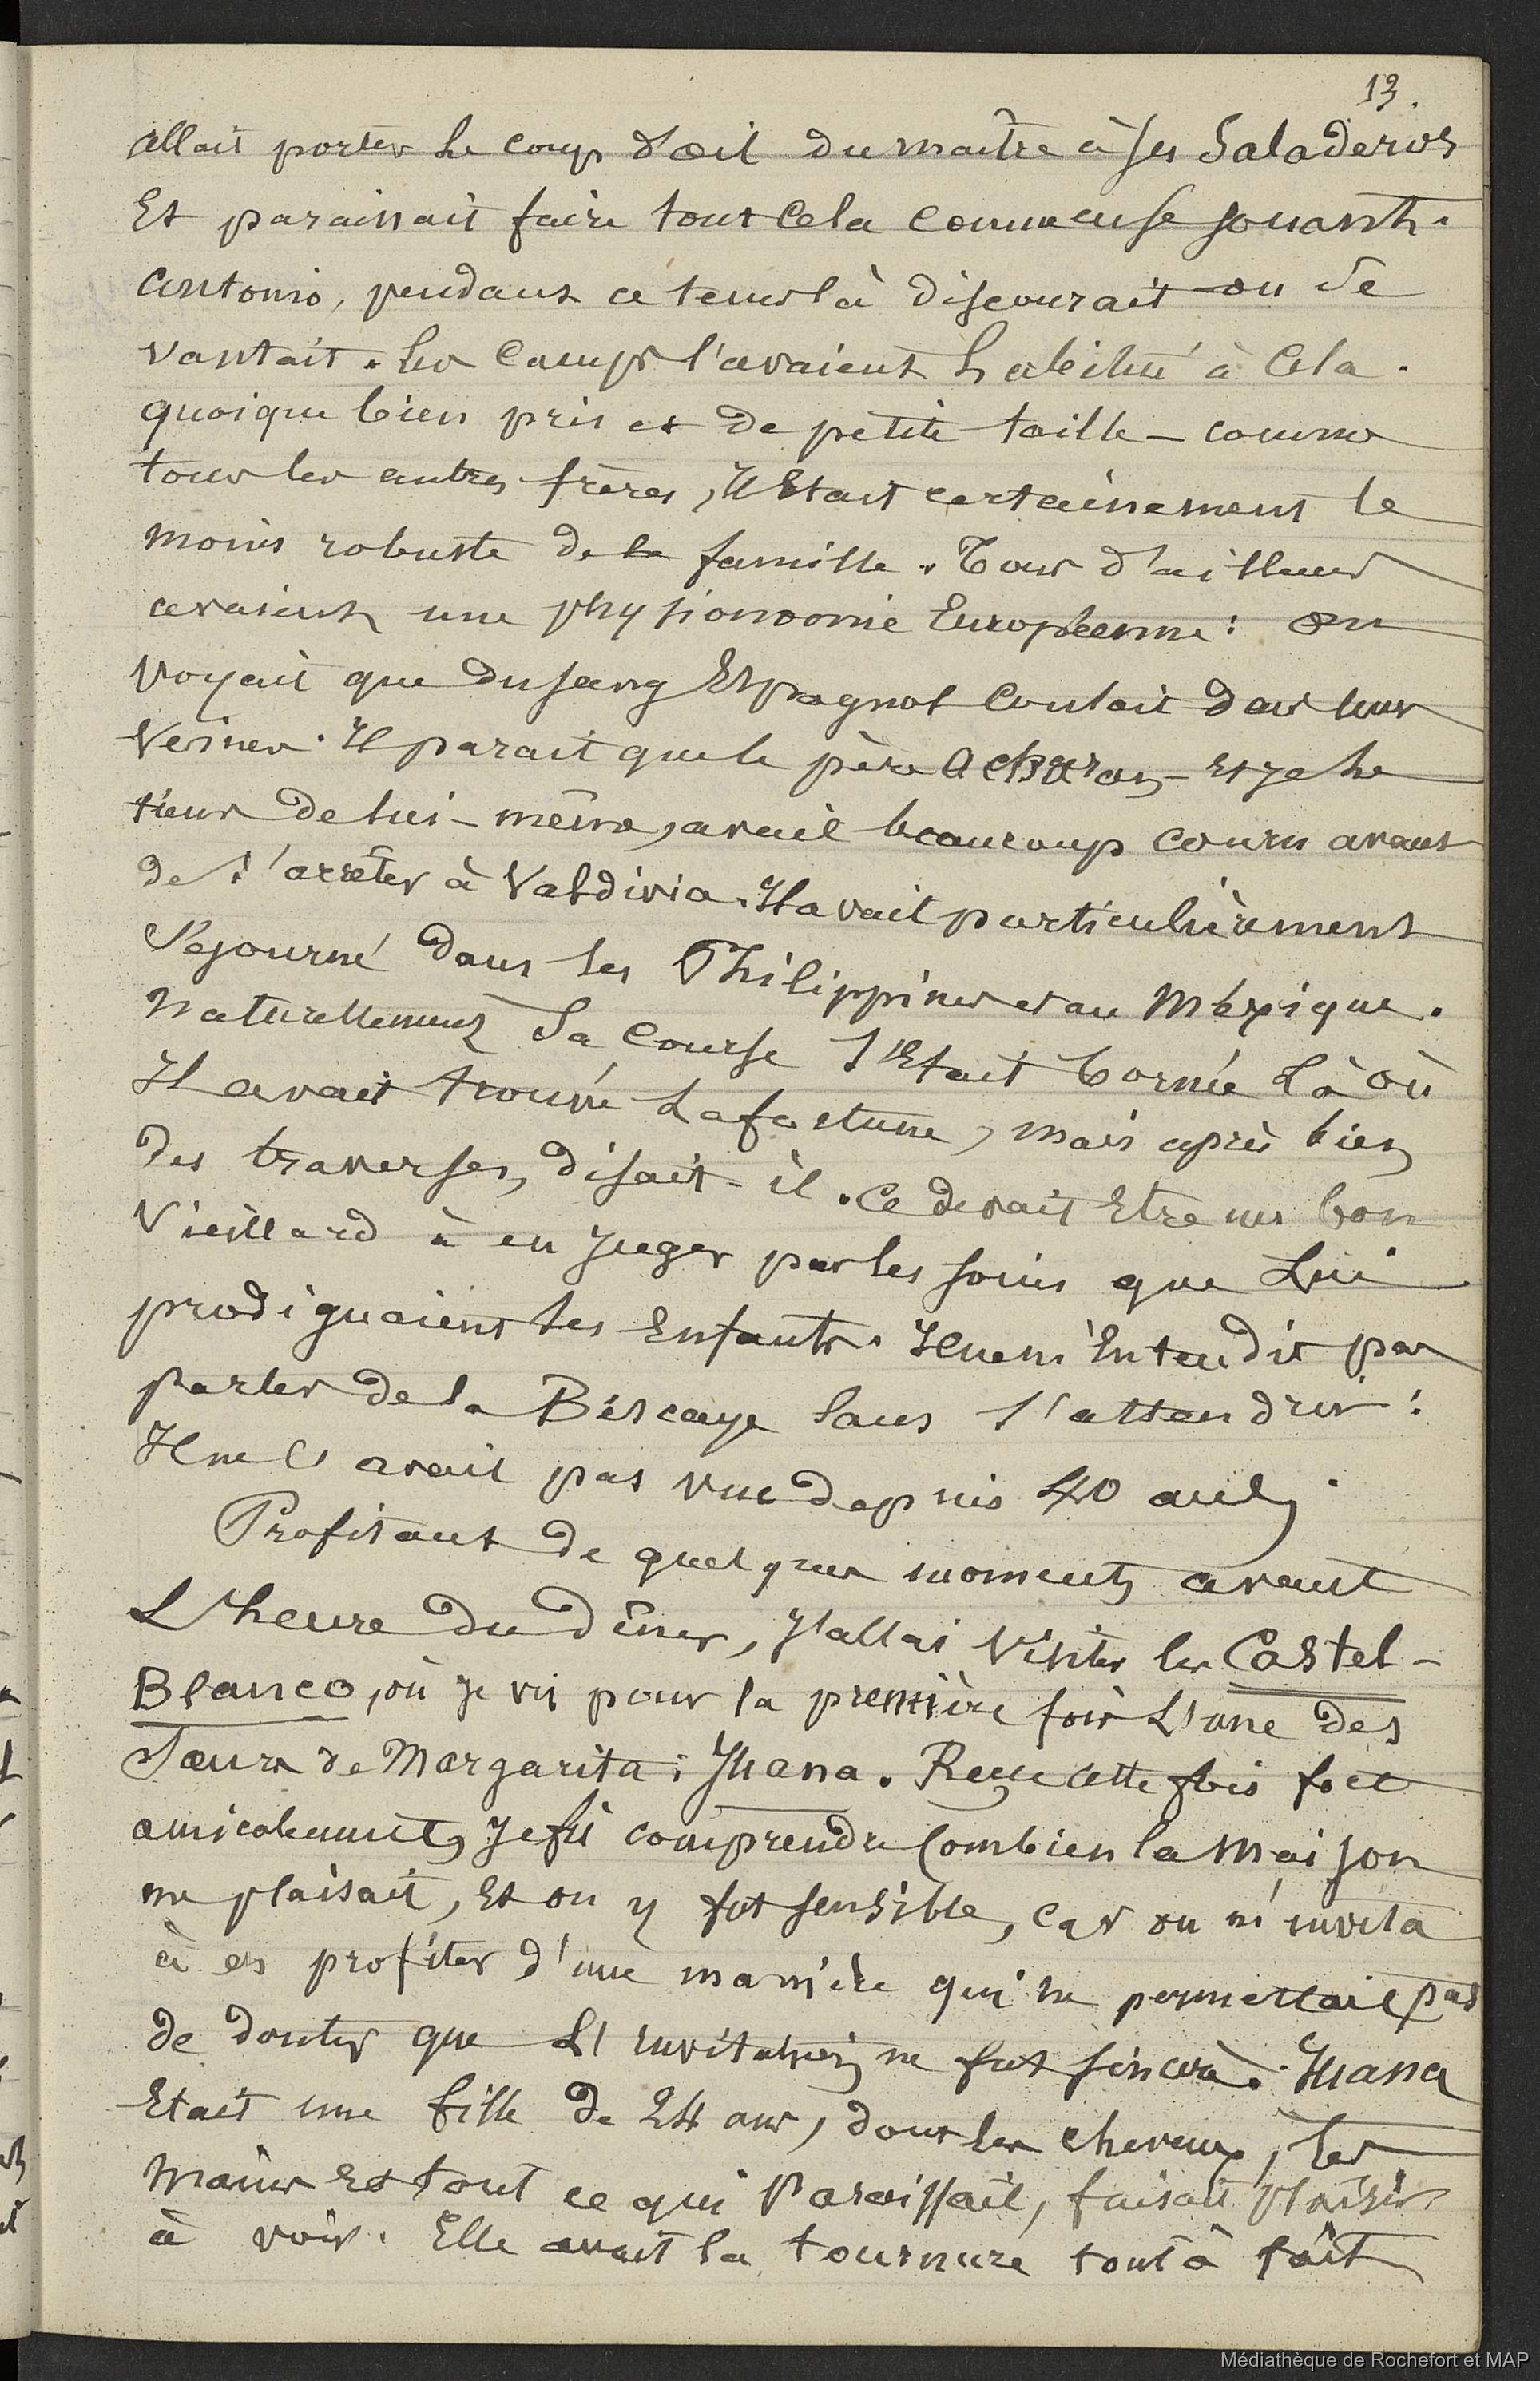 13.
allait porter le coup d'œil du maître à ses Saladeros
Et paraissait faire tout cela comme en se jouant.
Antonio, pendant ce tems là discourait ou se
vantait. Les camps l'avaient habitué à cela.
quoique bien pris et de petite taille - comme
tous les autres frères, Il Etait certainement le
moins robuste de la famille. Tous d'ailleurs
avaient une physionomie Européenne : on
voyait que du sang Espagnol coulait dans leurs
Veines. Il parait que le père - Et je le
tiens de lui-même, avait beaucoup couru avant
de s'arrêter à Valdivia. Il avait particulièrement
Séjourné dans les Philippines et au Mexique.
Naturellement Sa Course s'Etait bornée là où
Il avait trouvé La fortune, mais après bien
des traverses, disait-il. Ce devait Etre un bon
Vieillard à en juger par les soins que Lui
prodiguaient ses Enfants. Il ne m'Entendit pas
parler de la Biscaye sans s'attendrir :
Il ne l'avait pas vue depuis 40 ans.
Profitant de quelques moments avant
L'heure du dîner, J'allai visiter les Castel-
Blanco, où je vis pour la première fois L'une des
Sœurs de Margarita : Juana. Reçu cette fois fort
amicalement, Je fis comprendre Combien la Maison
me plaisait, Et on y fut sensible, car on m'invita
à en profiter d'une manière qui ne permettait pas
de douter que L'invitation ne fut sincère. Juana
Etait une fille de 24 ans, dont les cheveux, les
Mains Et tout ce qui Paraissait, faisait plaisir
à voir. Elle avait la tournure tout à fait